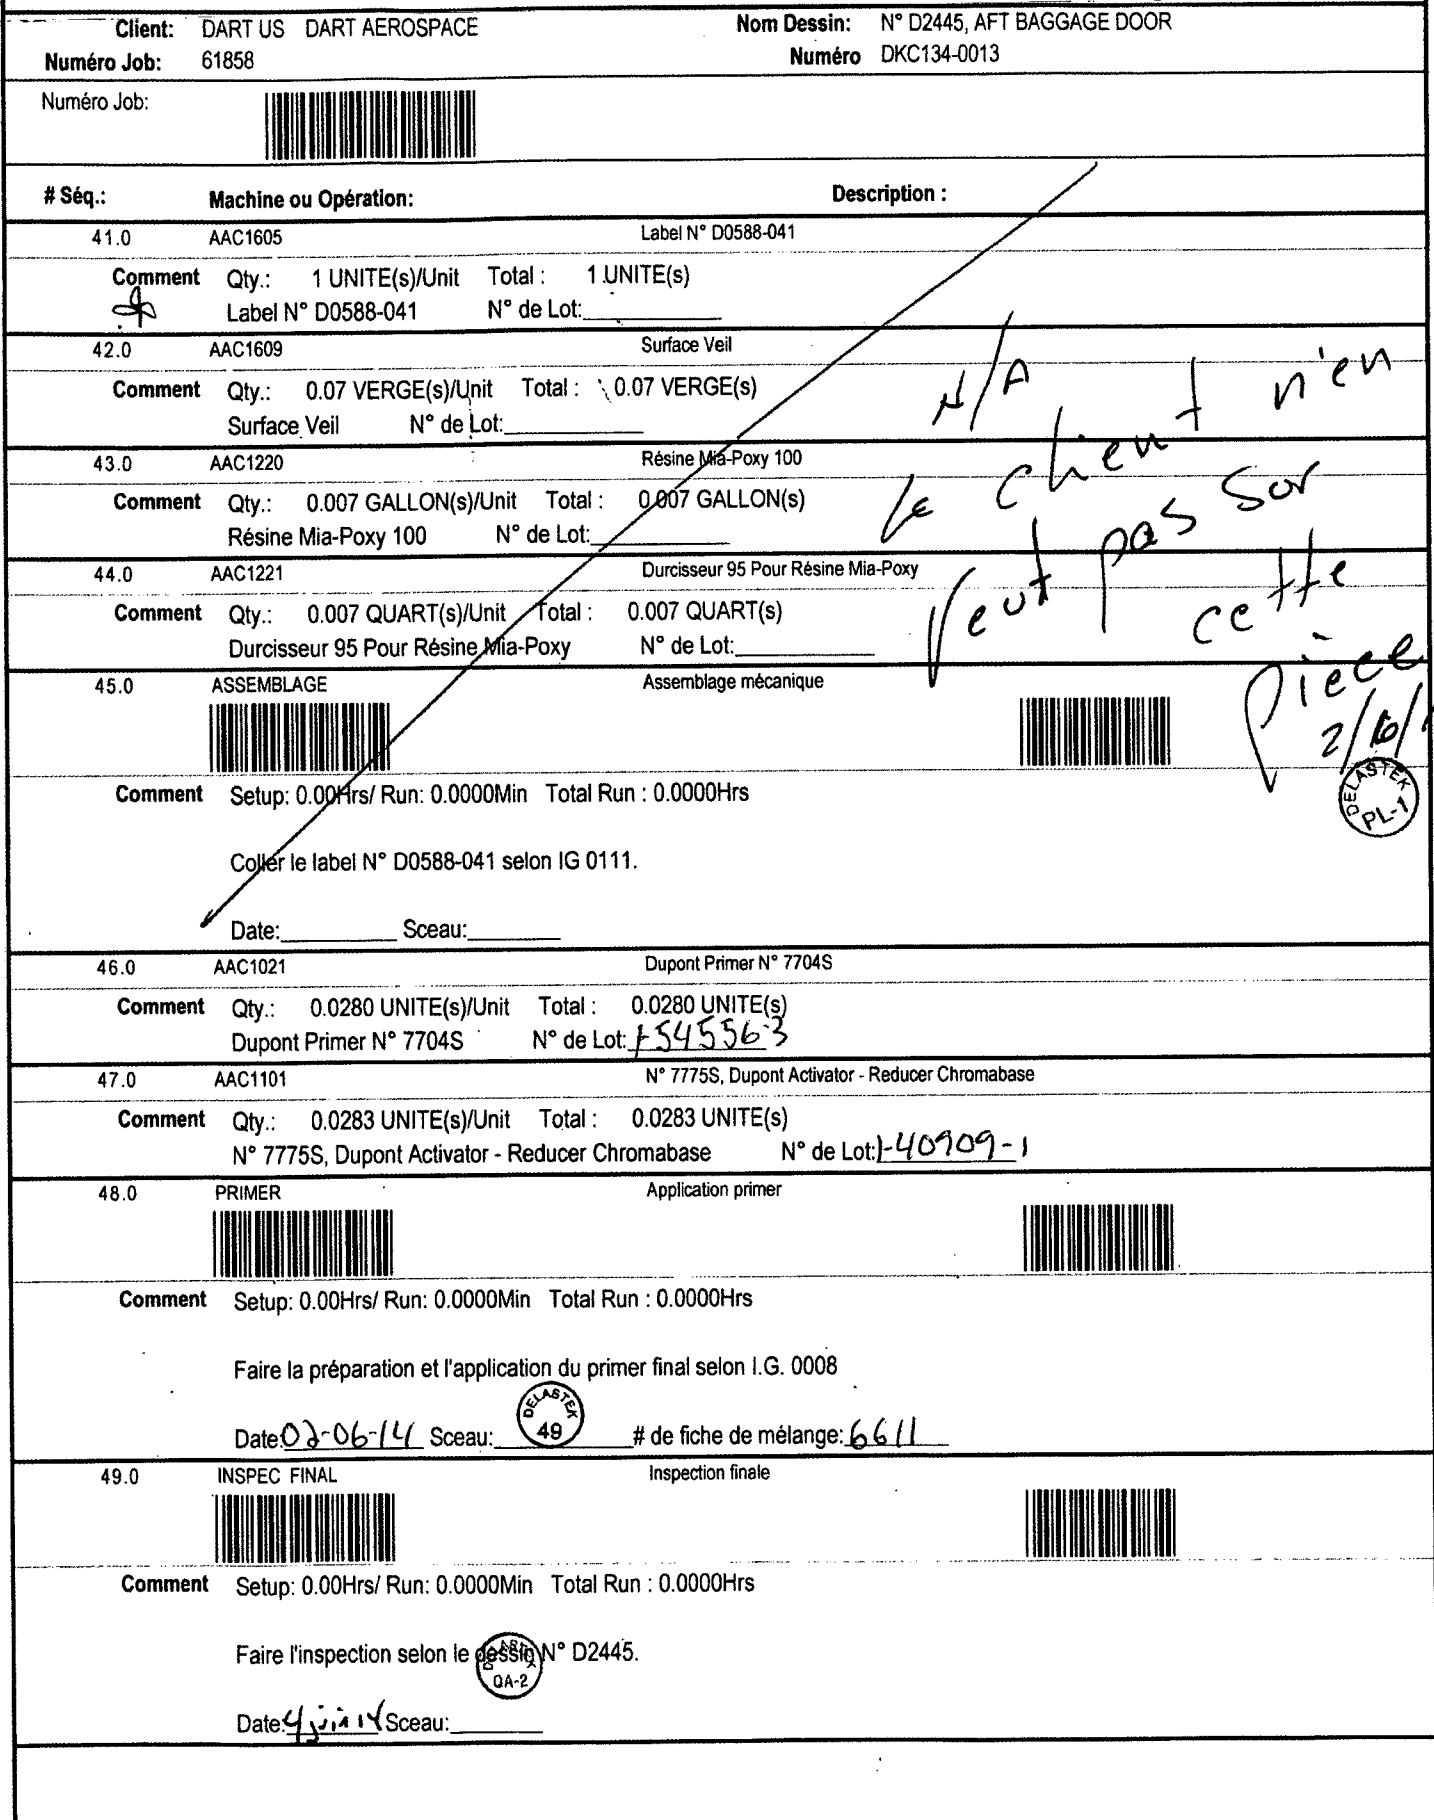 Client: DART US DART AEROSPACE Nom Dessin: N° D2445, AFT BAGGAGE DOOR
Numéro Job: 61858 Numéro DKC134-0013
Numéro Job:
# Séq.: Machine ou Opération: Description :
41.0 AAC1605 Label N° D0588-041
Comment Qty.: 1 UNITE(s)/Unit Total : 1 UNITE(s)
Label N° D0588-041 N° de Lot:
42.0 AAC1609 Surface Veil
Comment Qty.: 0.07 VERGE(s)/Unit Total : 0.07 VERGE(s)
Surface Veil N° de Lot:
43.0 AAC1220 Résine Mia-Poxy 100
Comment Qty.: 0.007 GALLON(s)/Unit Total : 0.007 GALLON(s)
Résine Mia-Poxy 100 N° de Lot:
44.0 AAC1221 Durcisseur 95 Pour Résine Mia-Poxy
Comment Qty.: 0.007 QUART(s)/Unit Total : 0.007 QUART(s)
Durcisseur 95 Pour Résine Mia-Poxy N° de Lot:
N/A
le client n'en
veut pas sur
cette
pièce
2/6/
DELASTEK
PL-1
45.0 ASSEMBLAGE Assemblage mécanique
Comment Setup: 0.00Hrs/ Run: 0.0000Min Total Run : 0.0000Hrs
Coller le label N° D0588-041 selon IG 0111.
Date: Sceau:
46.0 AAC1021 Dupont Primer N° 7704S
Comment Qty.: 0.0280 UNITE(s)/Unit Total : 0.0280 UNITE(s)
Dupont Primer N° 7704S N° de Lot: 1-54556-3
47.0 AAC1101 N° 7775S, Dupont Activator - Reducer Chromabase
Comment Qty.: 0.0283 UNITE(s)/Unit Total : 0.0283 UNITE(s)
N° 7775S, Dupont Activator - Reducer Chromabase N° de Lot: 1-40909-1
48.0 PRIMER Application primer
Comment Setup: 0.00Hrs/ Run: 0.0000Min Total Run : 0.0000Hrs
Faire la préparation et l'application du primer final selon I.G. 0008
Date: 02-06-14 Sceau: DELASTEK 49 # de fiche de mélange: 6611
49.0 INSPEC FINAL Inspection finale
Comment Setup: 0.00Hrs/ Run: 0.0000Min Total Run : 0.0000Hrs
Faire l'inspection selon le dessin N° D2445.
QA-2
Date: 4 juin 14 Sceau: